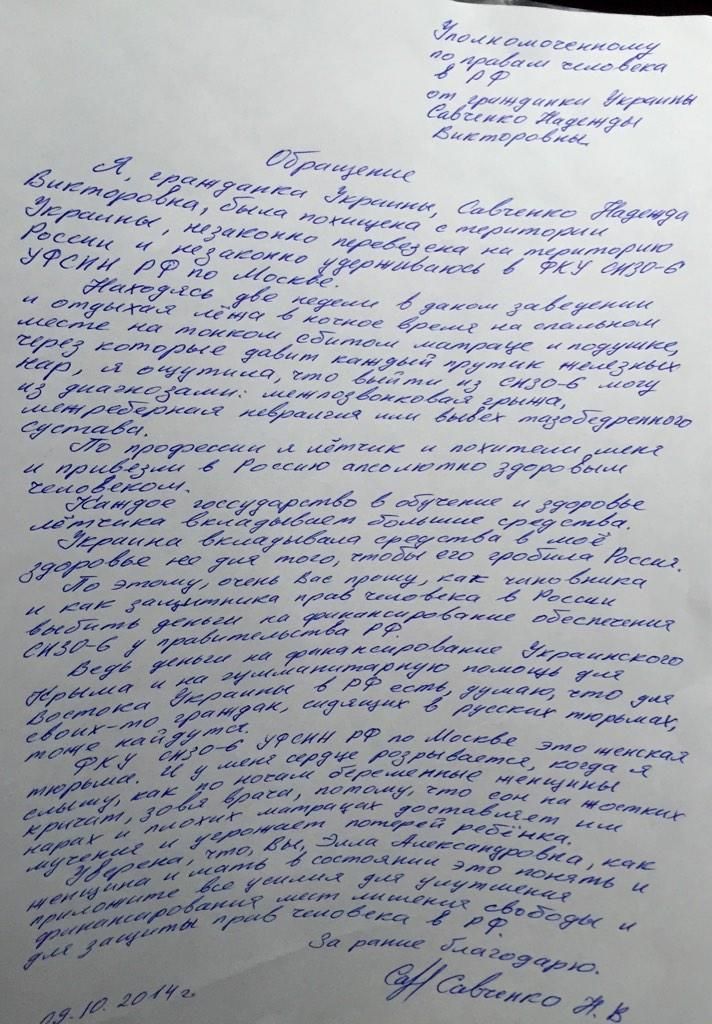 Уполномоченному
по правам человека
в РФ
от гражданки Украины
Савченко Надежды
Викторовны.
Обращение
Я, гражданка Украины, Савченко Надежда
Викторовна, была похищена с територии
Украины, незаконно перевезена на територию
России и незаконно удерживаюсь в ФКУ СИЗО-6
УФСИН РФ по Москве.
Находясь две недели в даном заведении
и отдыхая лёжа в ночное время на спальном
месте на тонком сбитом матраце и подушке,
через которые давит каждый прутик железных
нар, я ощутила, что выйти из СИЗО-6 могу
из диагнозами: межпозвонковая грыжа,
межреберная невралгия или вывех тазобедренного
сустава.
По профессии я лётчик и похители меня
и привезли в Россию апсолютно здоровым
человеком.
Каждое госсударство в обучение и здоровье
лётчика вкладывает большие средства.
Украина вкладывала средства в моё
здоровье не для того, чтобы его гробила Россия.
По этому, очень Вас прошу, как чиновника
и как защитника прав человека в России
выбить деньги на финансирование обеспечения
СИЗО-6 у правительства РФ.
Ведь деньги на финансирование Украинского
Крыма и на гумманитарную помощь для
Востока Украины в РФ есть, думаю, что для
своих-то граждан, сидящих в русских тюрьмах,
тоже найдутся.
ФКУ СИЗО-6 УФСИН РФ по Москве это женская
тюрьма. И у меня сердце розрывается, когда я
слышу, как по ночам беременные женщины
кричат, зовя врача, потому, что сон на жостких
нарах и плохих матрацах доставляет им
мучения и угрожает потерей ребёнка.
Уверена, что, Вы, Элла Александровна, как
женщина и мать в состоянии это понять и
приложите все усилия для улутшения
финансирования мест лишения свободы и
для защиты прав человека в РФ.
За рание благодарю.
Савченко Н. В
09.10.2014г.